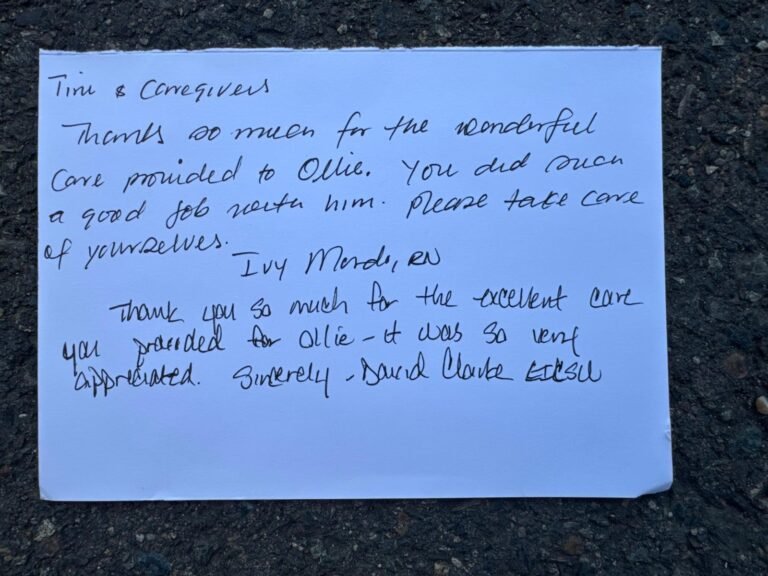 Tini & Caregivers
Thanks so much for the wonderful
care provided to Ollie. You did such
a good job with him. Please take care
of yourselves.
Ivy Mends, RN
Thank you so much for the excellent care
you provided for Ollie - it was so very
appreciated. Sincerely - David Clarke